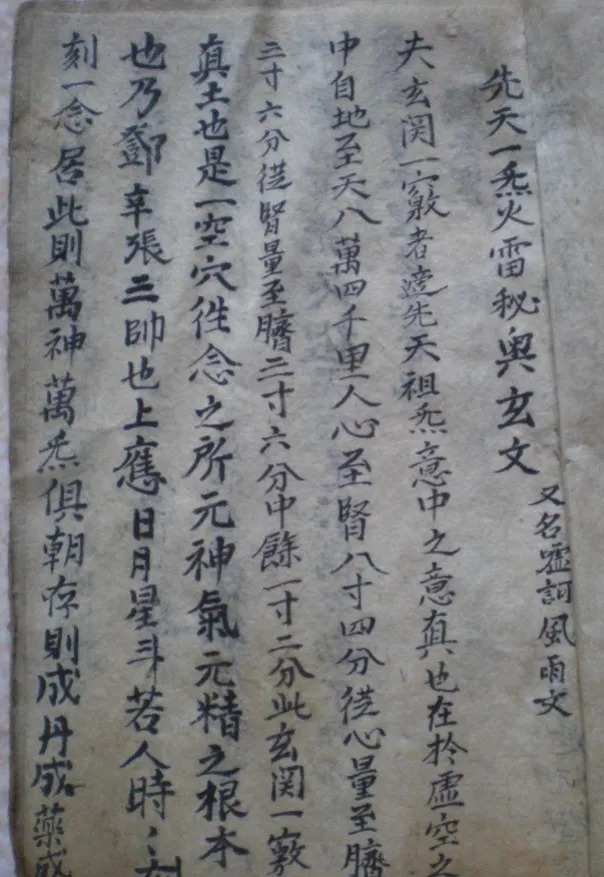 先天一炁火雷秘奥玄文
又名虚訶風雨文
夫玄関一竅者迺先天祖炁意中之意真也在扵虚空之
中自地至天八萬四千里人心至腎八寸四分從心量至臍
三寸六分從腎量至臍三寸六分中餘一寸二分此玄関一竅
真土也是一空穴性念之所元神氣元精之根本
也乃鄧辛張三帥也上應日月星斗若人時〻刻
刻一念居此則萬神萬炁俱朝存則成丹成藥成